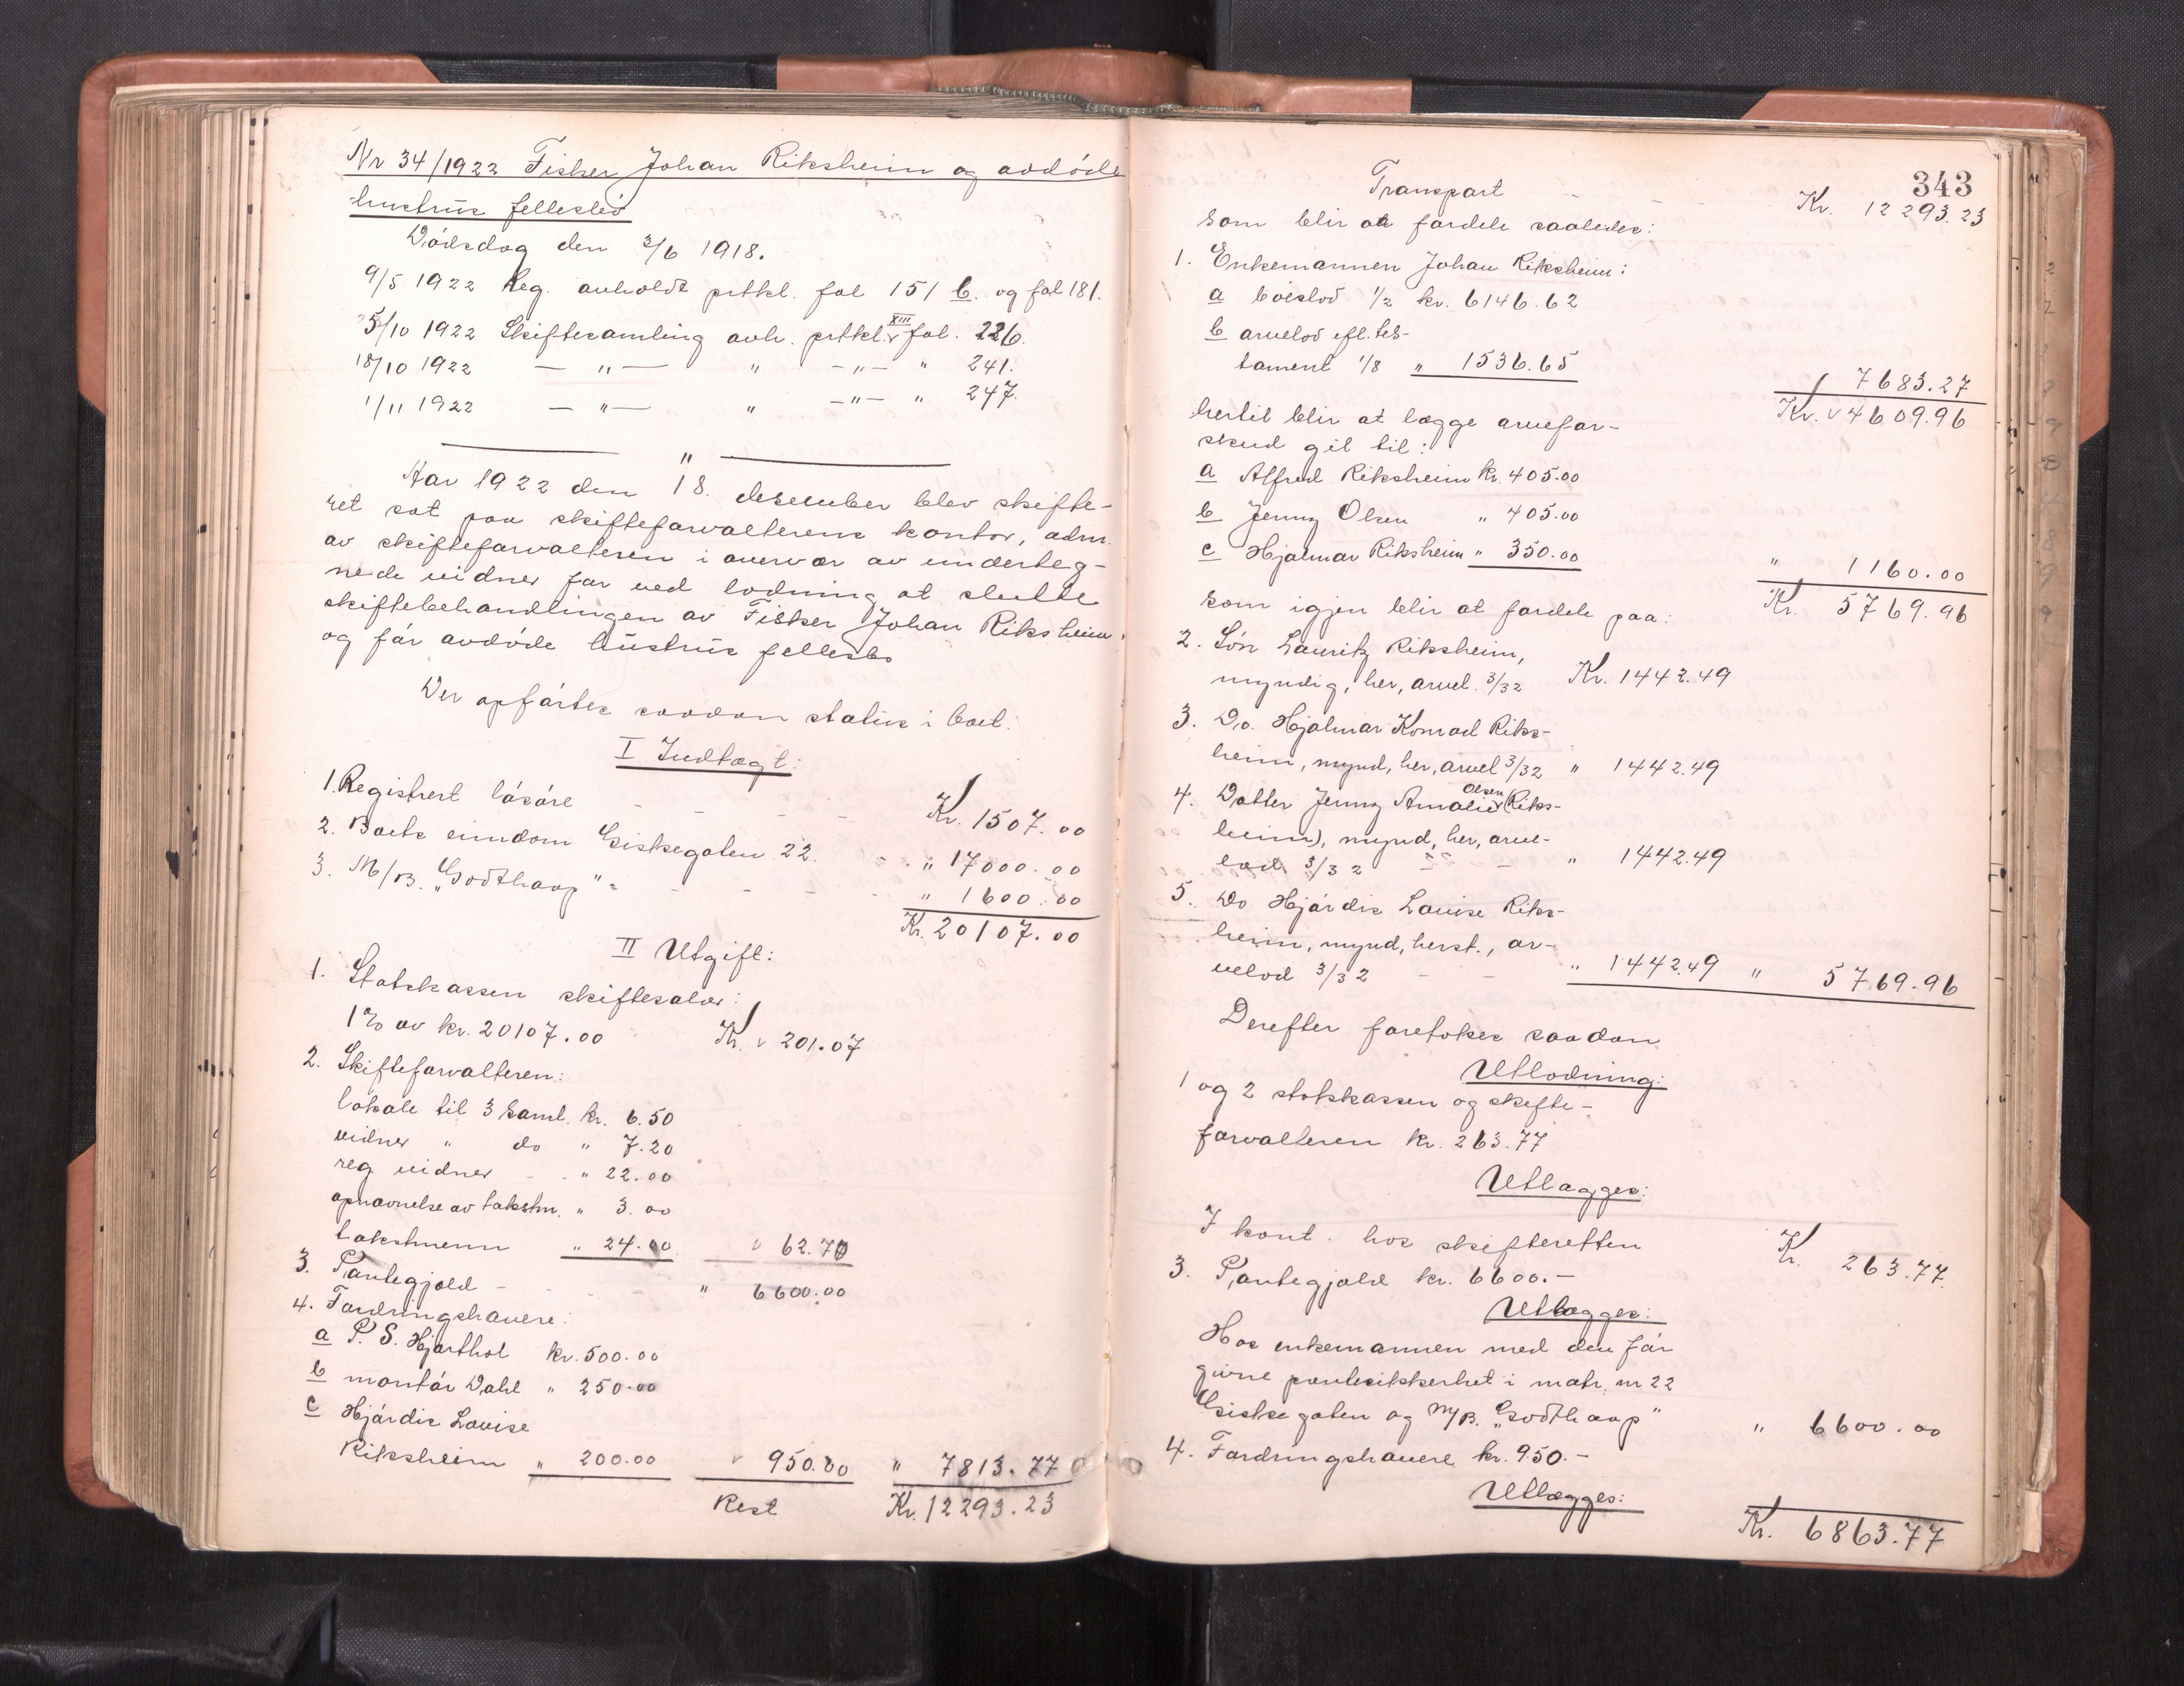 Nr 34/1922 Fisker Johan Riksheim og avdöde
hustrus fellesbo
Dödsdag den 3/6 1918.
9/5 1922 Reg. avholdt prtkl. fol 151 b. og fol 181.
5/10 1922 Skiftesamling avh. prtkl. XIII fol. 226.
18/10 1922 — " — " — " — " 241.
1/11 1922 — " — " — " — " 247.
"
Aar 1922 den 18. desember blev skifte-
ret sat paa skifteforvalterens kontor, adm.
av skifteforvalteren i overvær av underteg-
nede vidner for ved lodning at slutte
skiftebehandlingen av Fisker Johan Riksheim
og før avdöde hustrus fellesbo
Der opførtes saadan status i boet:
I Indtægt:
1. Registrert lösöre - - - - Kr. 1507.00
2. Boets eiendom Giskegaten 22. - - " 17000.00
3. M/B. „Godthaap" - - - - " 1600.00
Kr. 20107.00
II Utgift:
1. Statskassen skiftesalær:
1% av kr. 20107.00 Kr. 201.07
2. Skifteforvalteren:
lokale til 3 saml. kr. 6.50
vidner " do " 7.20
reg. vidner - - " 22.00
opnævnelse av takstm. " 3.00
takstmenn " 24.00 62.70
3. Pantegjæld - - - - " 6600.00
4. Fordringshavere:
a P. S. Hjorthol kr. 500.00
b montör Dahl " 250.00
c Hjördis Lovise
Riksheim " 200.00 950.00 " 7813.77
Rest Kr. 12293.23
343
Transport - - Kr. 12293.23
som blir at fordele saaledes:
1. Enkemannen Johan Riksheim:
a boeslod 1/2 kr. 6146.62
b arvelod efl. tes-
tament 1/8 " 1536.65
7683.27
Kr. 4609.96
hertil blir at lægge arvefor-
skud git til:
a Alfred Riksheim kr. 405.00
b Jenny Olsen " 405.00
c Hjalmar Riksheim " 350.00
" 1160.00
Kr. 5769.96
som igjen blir at fordele paa:
2. Søn Lauritz Riksheim,
myndig, her, arvel. 3/32 Kr. 1442.49
3. Do. Hjalmar Konrad Riks-
heim, mynd, her, arvel 3/32 " 1442.49
4. Datter Jenny Amalie Olsen (Riks-
heim), mynd, her, arve-
lod 3/32 - - " 1442.49
5. Do Hjördis Lovise Riks-
heim, mynd, herst., ar-
velod 3/32 - - " 1442.49 " 5769.96
Derefter foretokes saadan
Utlodning:
1 og 2 statskassen og skifte-
forvalteren kr. 263.77
Utlægges:
I kont. hos skifteretten Kr. 263.77.
3. Pantegjæld kr. 6600.-
Utlægges:
Hos enkemannen med den før
givne pantesikkerhet i matr. nr 22
Giskegaten og M/B. „Godthaap" " 6600.00
4. Fordringshavere kr. 950.-
Utlægges:
Kr. 6863.77